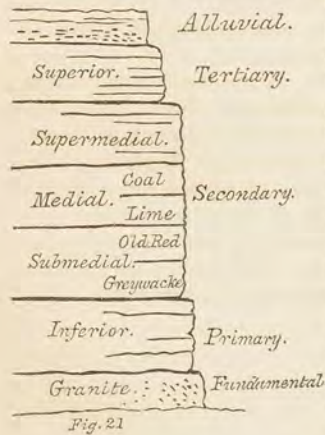 Alluvial.
Superior. Tertiary.
Supermedial.
Coal
Medial. Secondary.
Lime
Old Red
Submedial.
Greywacke
Inferior. Primary.
Granite. Fundamental
Fig. 21